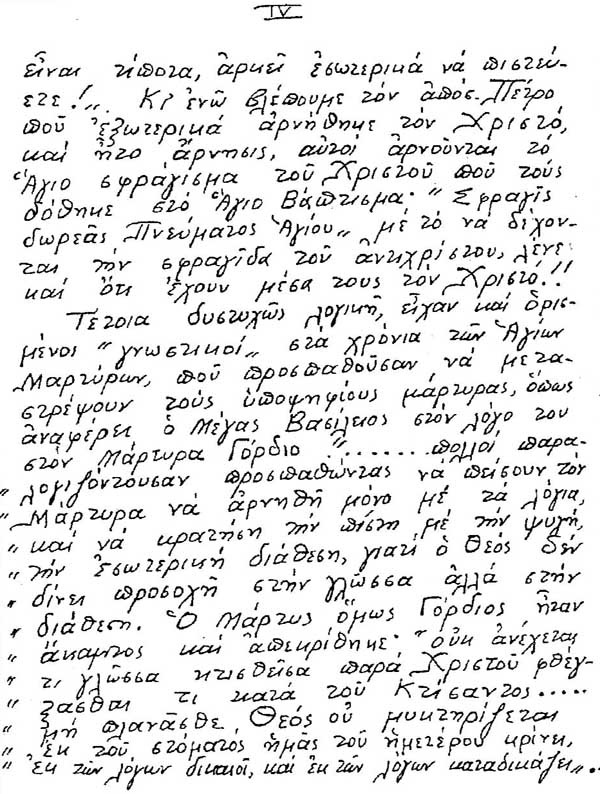 IV
εἶναι τίποτα, ἀρκεῖ ἐσωτερικά νά πιστεύ-
ετε!". Κι' ἐνῶ βλέπουμε τόν ἀπόσ. Πέτρο
πού ἐξωτερικά ἀρνήθηκε τόν Χριστό,
καί ἦτο ἄρνησις, αὐτοί ἀρνοῦνται τό
Ἅγιο σφράγισμα τοῦ Χριστοῦ πού τούς
δόθηκε στό Ἅγιο Βάπτισμα· "Σφραγίς
δωρεᾶς Πνεύματος Ἁγίου" μέ τό νά δέχον-
ται τήν σφραγῖδα τοῦ ἀντιχρίστου, λένε
καί ὅτι ἔχουν μέσα τους τόν Χριστό!!
Τέτοια δυστυχῶς λογική, εἶχαν καί ὁρισ-
μένος "γνωστικοί" στά χρόνια τῶν Ἁγίων
Μαρτύρων, πού προσπαθοῦσαν νά μετα-
στρέψουν τούς ὑποψηφίους μάρτυρας, ὅπως
ἀναφέρει ὁ Μέγας Βασίλειος στόν λόγο του
στόν Μάρτυρα Γόρδιο "........πολλοί παρα-
" λογιζόντουσαν προσπαθώντας νά πείσουν τόν
" Μάρτυρα νά ἀρνηθῆ μόνο μέ τά λόγια,
" καί νά κρατήση τήν πίστη μέ τήν ψυχή,
" τήν ἐσωτερική διάθεση, γιατί ὁ Θεός δέν
" δίνει προσοχή στήν γλῶσσα ἀλλά στήν
" διάθεση. Ὁ Μάρτυς ὅμως Γόρδιος ἦταν
" ἄκαμπτος καί ἀπεκρίθηκε· "οὐκ ἀνέχεται
" τι γλῶσσα κτισθεῖσα παρά Χριστοῦ φθέγ-
" ξασθαι τι κατά τοῦ Κτίσαντος.....
" μή πλανᾶσθε, Θεός οὐ μυκτηρίζεται
" Ἐκ τοῦ στόματος ἡμᾶς τοῦ ἡμετέρου κρίνει,
" Ἐκ τῶν λόγων δικαιοῖ, καί ἐκ τῶν λόγων καταδικάζει"..